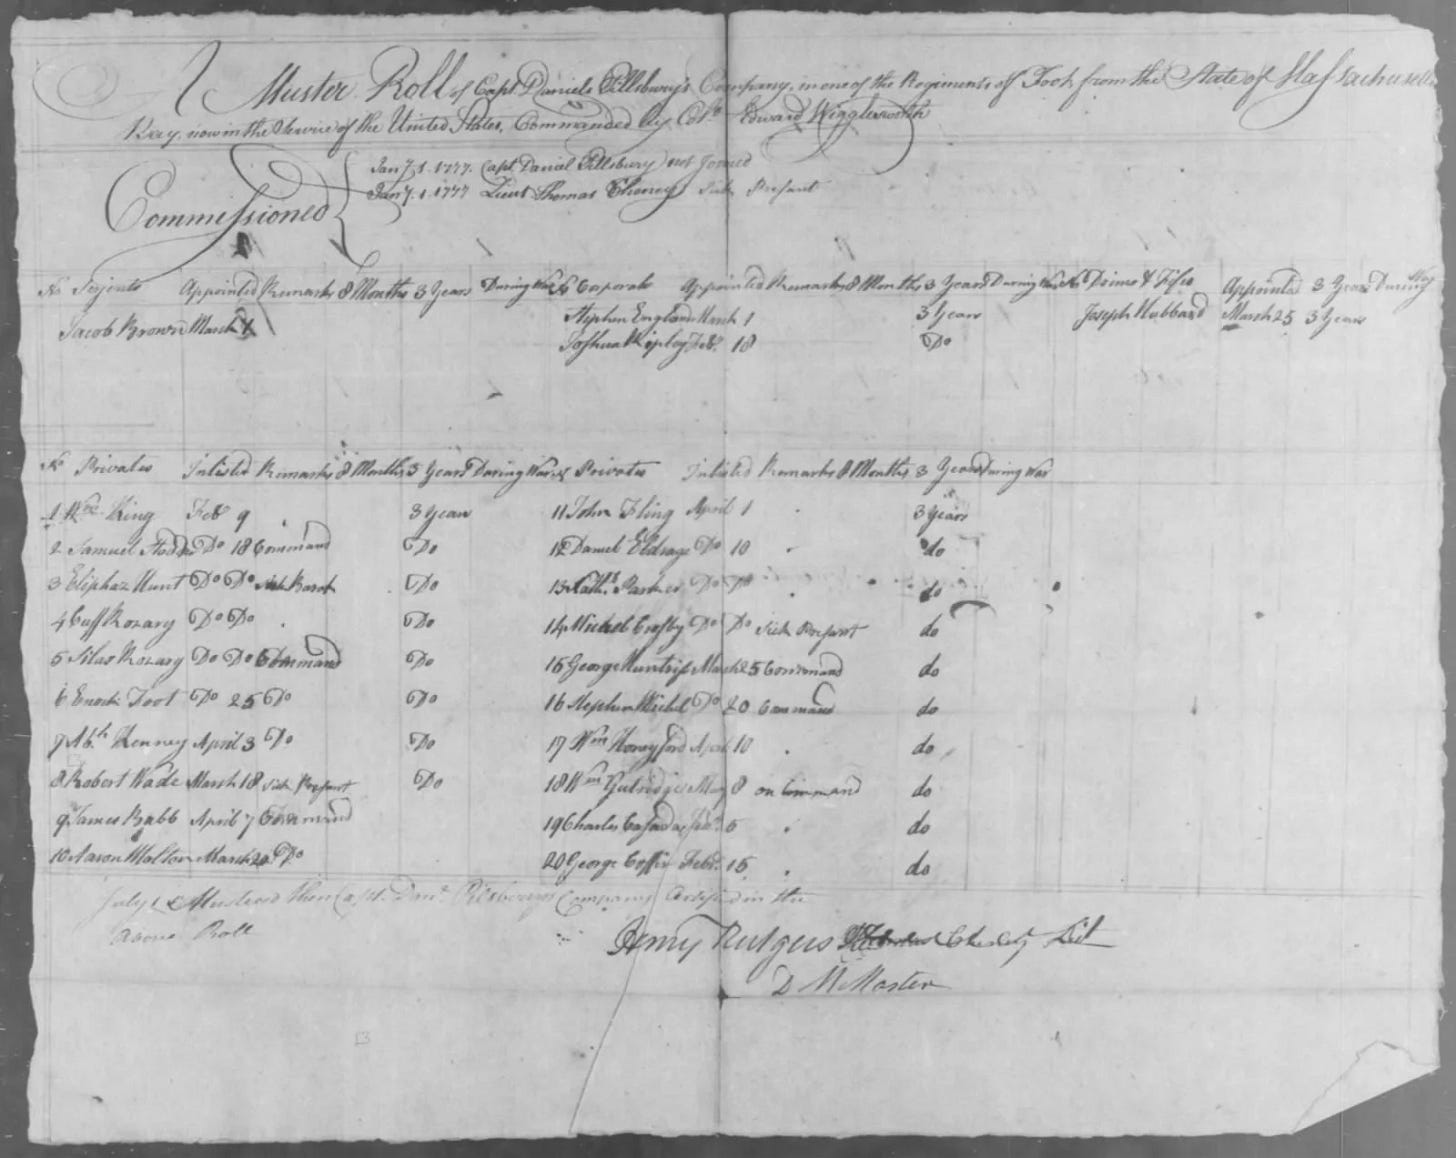 A Muster Roll of Capt Daniels Pillsbury's Company, in one of the Regiments of Foot from the State of Massachusetts
Bay, now in the Service of the United States, Commanded by Colo Edward Wigglesworth
Commissioned
Jany 1 1777. Capt Danial Pillsbury not Joined
Jany. 1. 1777 Lieut Thomas Cheney Sick Presant
No Serjents Appointed Remarks 8 Months 3 Years During War No Corporals Appointed Remarks 8 Months 3 Years During War No Drums & Fifes Appointed 3 Years During War
Jacob Brown March Stephen England March 1 3 Years Joseph Hubbard March 25 3 Years
Joshua Ripley Feb. 18 Do
No Privates Inlisted Remarks 8 Months 3 Years During War No Privates Inlisted Remarks 8 Months 3 Years During War
1 Wm King Feb 9 3 Years 11 John Fling April 1 3 Years
2 Samuel Do 18 Command Do 12 Daniel Eldrage Do 10 do
3 Eliphaz Hunt Do Do Sick Do 13 Parker Do Do do
4 Cuff Rozary Do Do Do 14 Michel Crosby Do Do Sick Presant do
5 Silas Rozary Do Do Command Do 15 George March 25 Command do
6 Enoch Foot Do 25 Do Do 16 Stephen Michel Do 20 Command do
7 Abth Kenney April 3 Do Do 17 Wm Honeyford April 10 do
8 Robert Wade March 18 Sick Presant Do 18 Wm Gutridge May 8 on Command do
9 James Babb April 7 Command 19 Charles Feb. 5 do
10 Aaron Malton March 20 Do 20 George Coffin Feb. 15 do
July 1 Mustered then Capt. Danl Pilsburys Company Certified in the
above Roll
Henry Rutgers Lit
D M Master